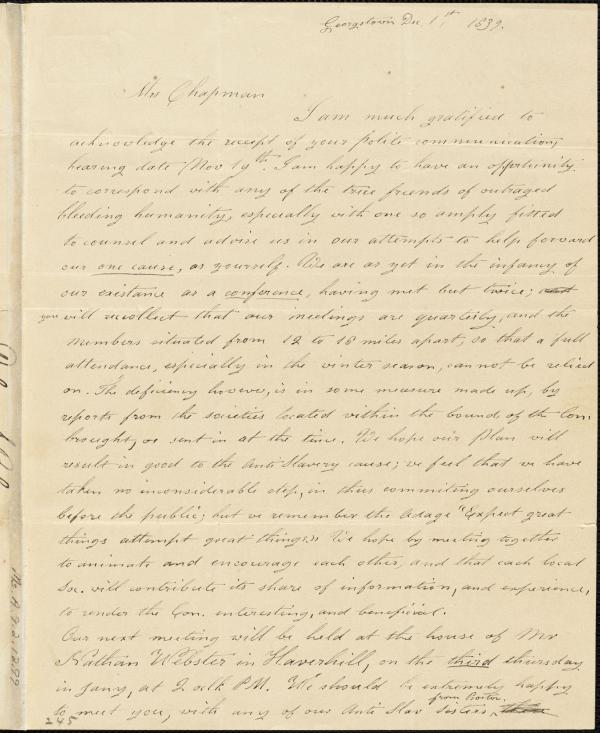 Georgetown Dec. 1st, 1839.
Mrs Chapman
I am much gratified to
acknowledge the receipt of your polite communication,
bearing date Nov 19th. I am happy to have an opportunity
to correspond with any of the true friends of outraged
bleeding humanity, especially with one so amply fitted
to counsel and advise us in our attempts to help forward
our one cause, as yourself. We are as yet in the infancy of
our existance as a conference, having met but twice; and
you will recollect that our meetings are quarterly, and the
numbers situated from 12 to 18 miles apart, so that a full
attendance, especially in the winter season, cannot be relied
on. The deficiency however, is in some measure made up, by
reports from the societies located within the bound of the Con.
brought, or sent in at the time. We hope our Plan will
result in good to the Anti Slavery cause; we feel that we have
taken no inconsiderable step, in thus commiting ourselves
before the public; but we remember the adage "Expect great
things attempt great things". We hope by meeting together
to animate and encourage each other, and that each local
Soc. will contribute its share of information, and experience,
to render the Con. interesting, and beneficial.
Our next meeting will be held at the house of Mr
Nathan Webster in Haverhill, on the third thursday
in Jany, at 2 oclk P.M. We should be extremely happy
from Boston.
to meet you, with any of our Anti Slav sisters
245